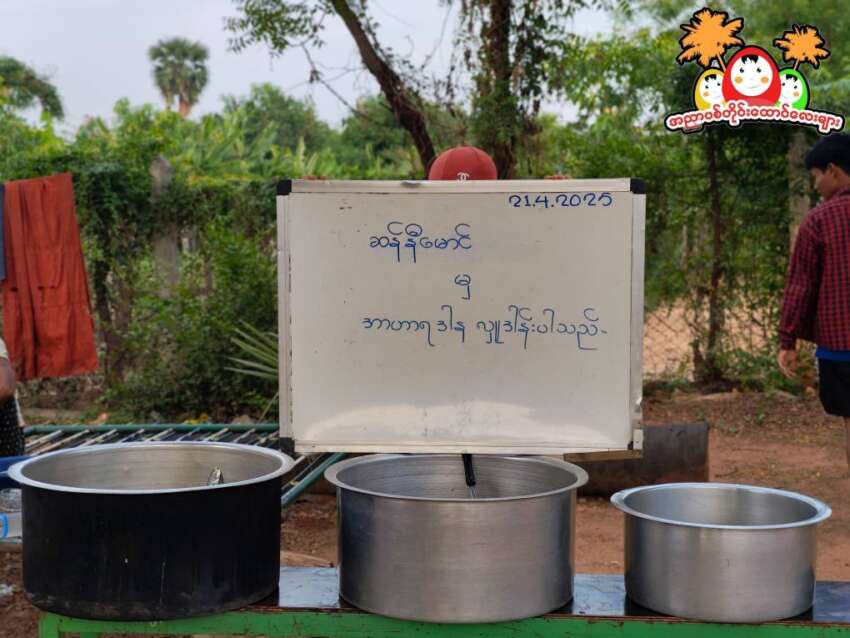 အညာပစ်တိုင်းထောင်လေးများ
21.4.2025
ဆန်နီမောင်
မှ
အာဟာရဒါန လှူဒါန်းပါသည်။